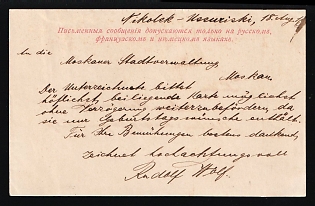 Nikolsk-Ussuriski, 15 Aug
Письменныя сообщенія допускаются только на русскомъ,
французскомъ и нѣмецкомъ языкахъ.
An die
Moskauer Stadtverwaltung,
Moskau.
Der Unterzeichnete bittet
höflichst, beiliegende Karte möglichst
ohne Verzögerung weiterzubefördern, da
sie nur Geburtstagswünsche enthält.
Für Ihre Bemühungen bestens dankend,
zeichnet hochachtungsvoll
Rudolf Wolf.